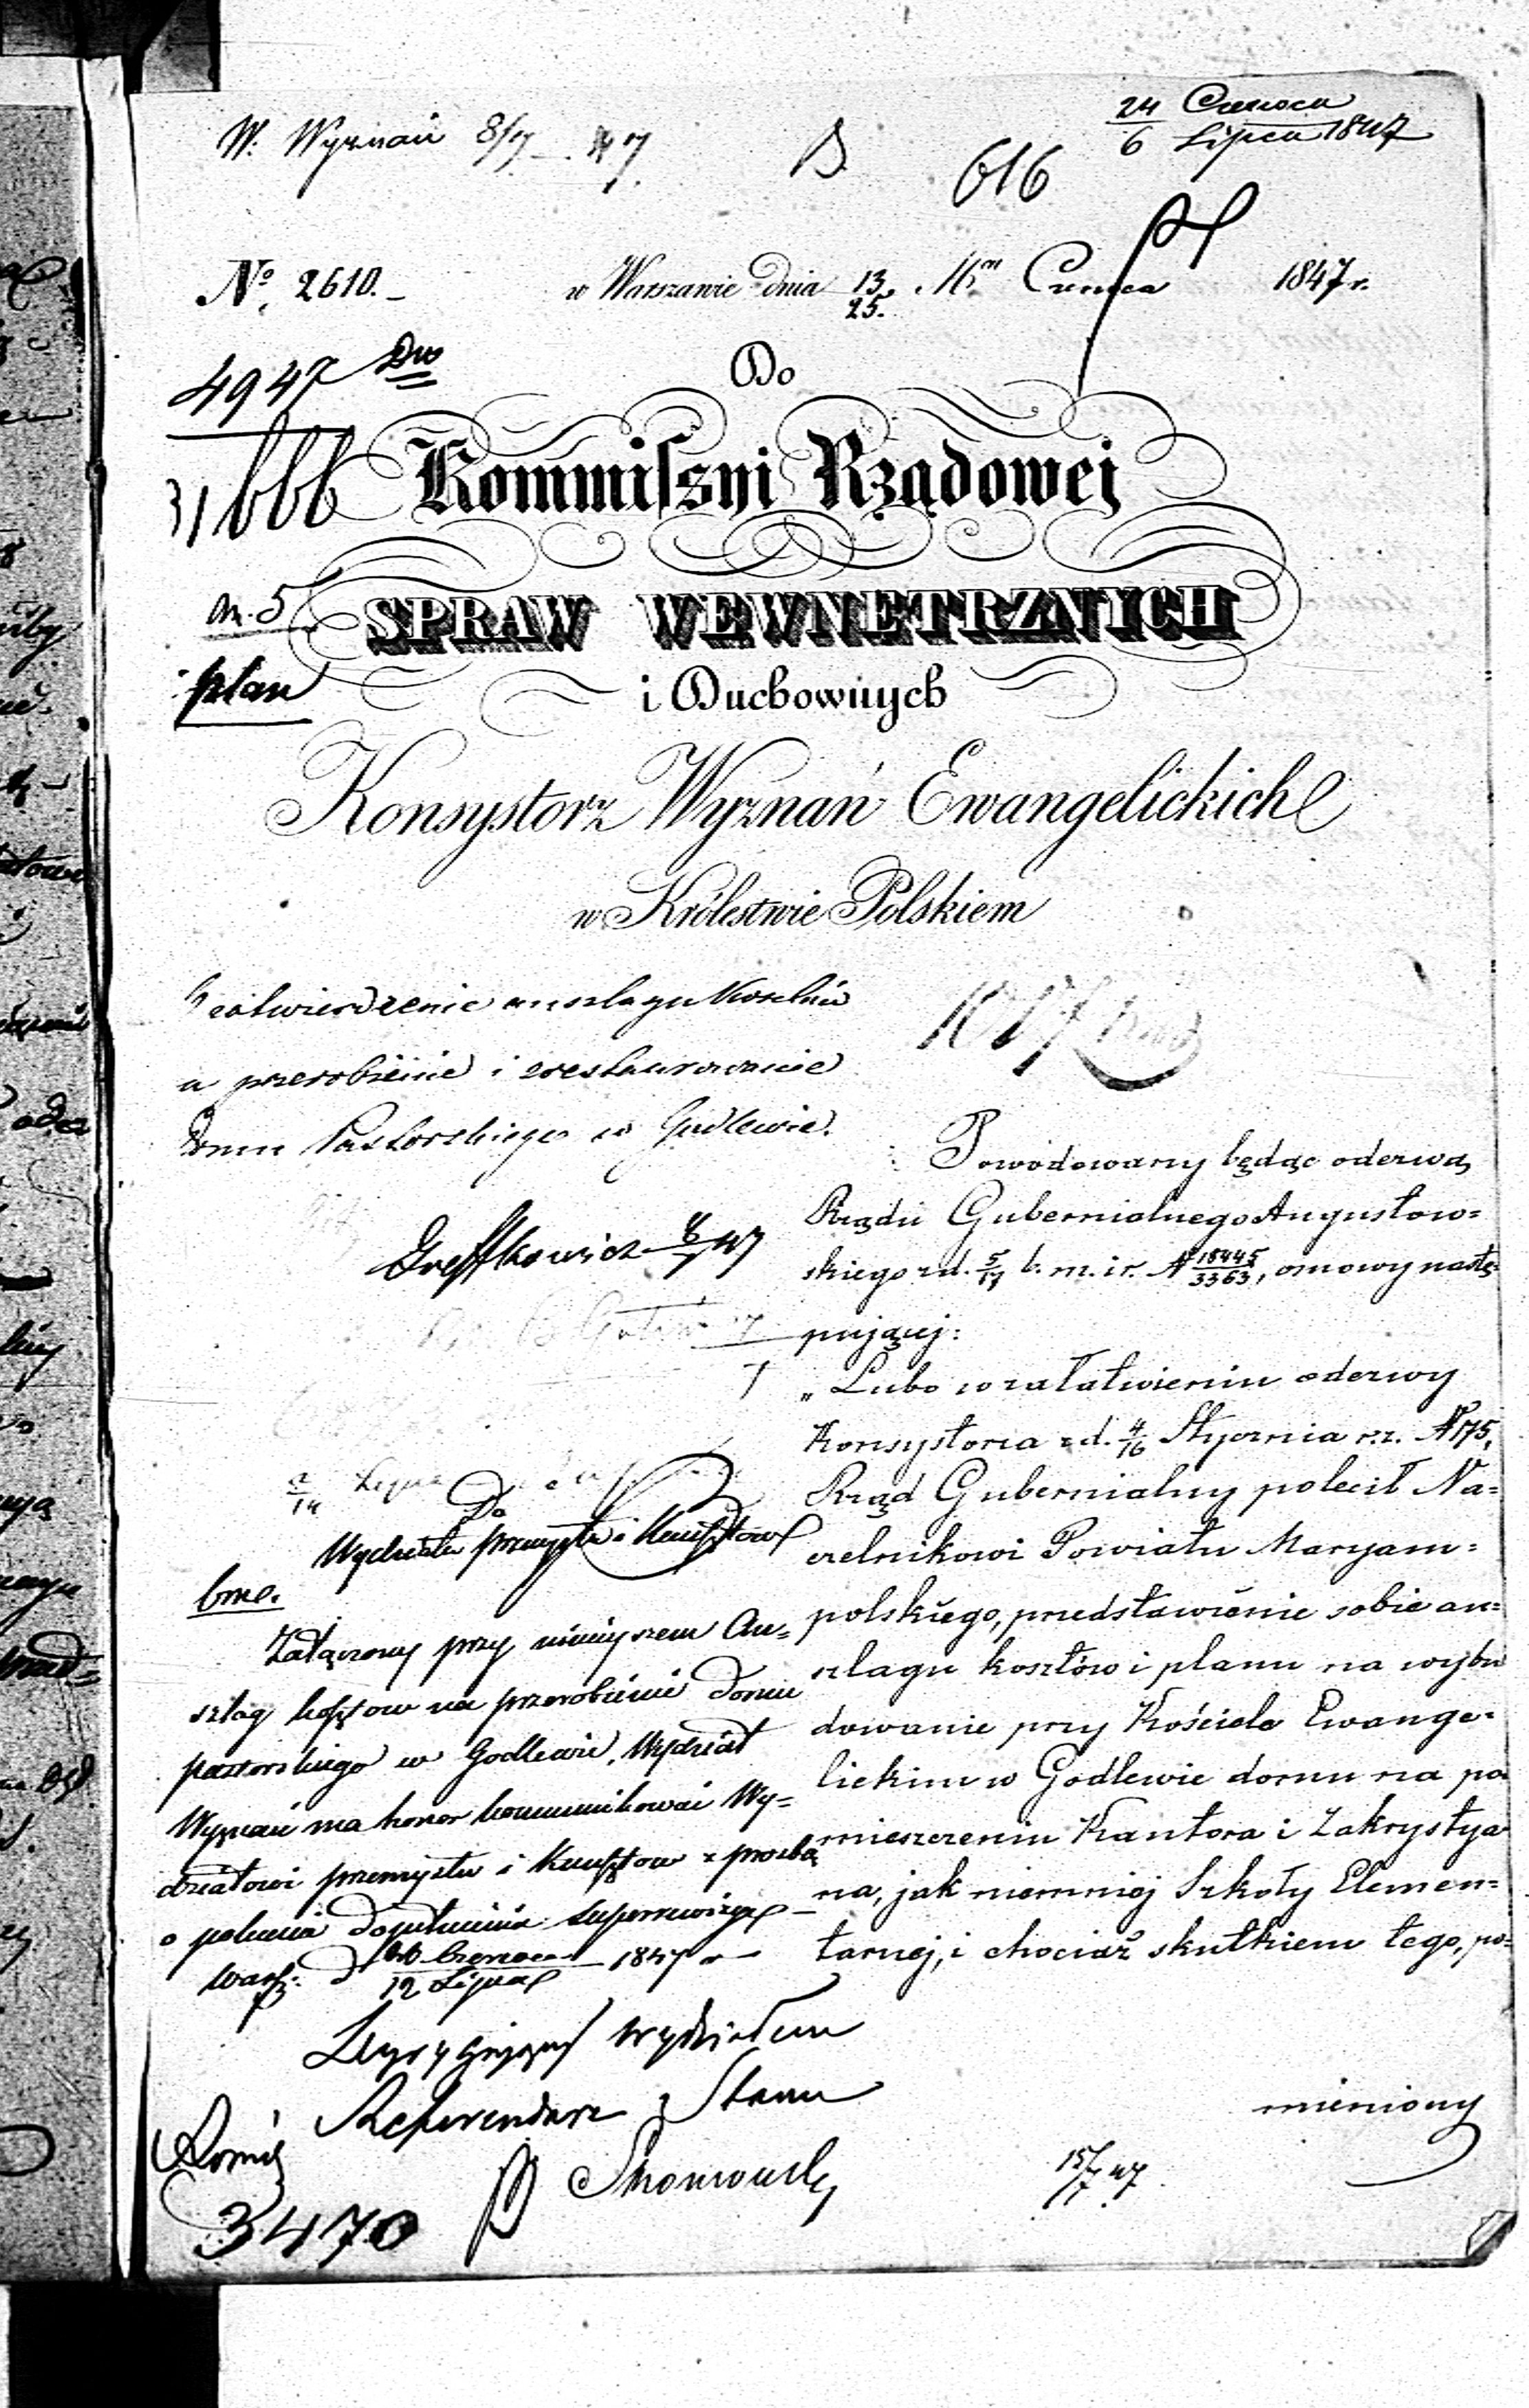 24 Czerwca
6 Lipca 1847
W. Wyznań 8/7 47
B.
616
№ 2610.
w Warszawie dnia 13/25. Mca Czerwca 1847 r.
4947 Dw
31666
Do
Kommissyi Rządowej
an. 5
SPRAW WEWNĘTRZNYCH
plan
i Duchownych
Konsystorz Wyznań Ewangelickich
w Królestwie Polskiem
O zatwierdzenie anszlagu Kosztów
na przerobienie i zrestaurowanie
domu Pastorskiego w Godlewie.
Powodowany będąc odezwą
Rządu Gubernialnego Augustow=
skiego z d. 5/17 b. m. i r. № 18445/3363, osnowy nastę=
pującej:
„Lubo w załatwieniu odezwy
Konsystorza z d. 4/16 Stycznia r. z. № 175,
Rząd Gubernialny polecił Na=
czelnikowi Powiatu Maryam=
polskiego, przedstawienie sobie an=
szlagu kosztów i planu na wybu
dowanie przy Kościele Ewange=
lickim w Godlewie domu na po
mieszczenie Kantora i Zakrystya
na, jak niemniej Szkoły Elemen=
tarnej, i chociaż skutkiem tego, po=
mieniony
8/7 47
Do
Wydziału przemysłu i Kunsztów
bmo.
Załączony przy niniejszem An=
szlag kosztow na przerobienie domu
pastorskiego w Godlewie, Wydział
Wyznań ma honor kommunikować Wy=
działowi przemysłu i Kunsztow z prosbą
o polecenie dopełnienia superrewizyi
Warsz: d 30 Czerwca/12 Lipca 1847 r
Dyrygujący Wydziałem
Referendarz Stanu
15/7 47
3470